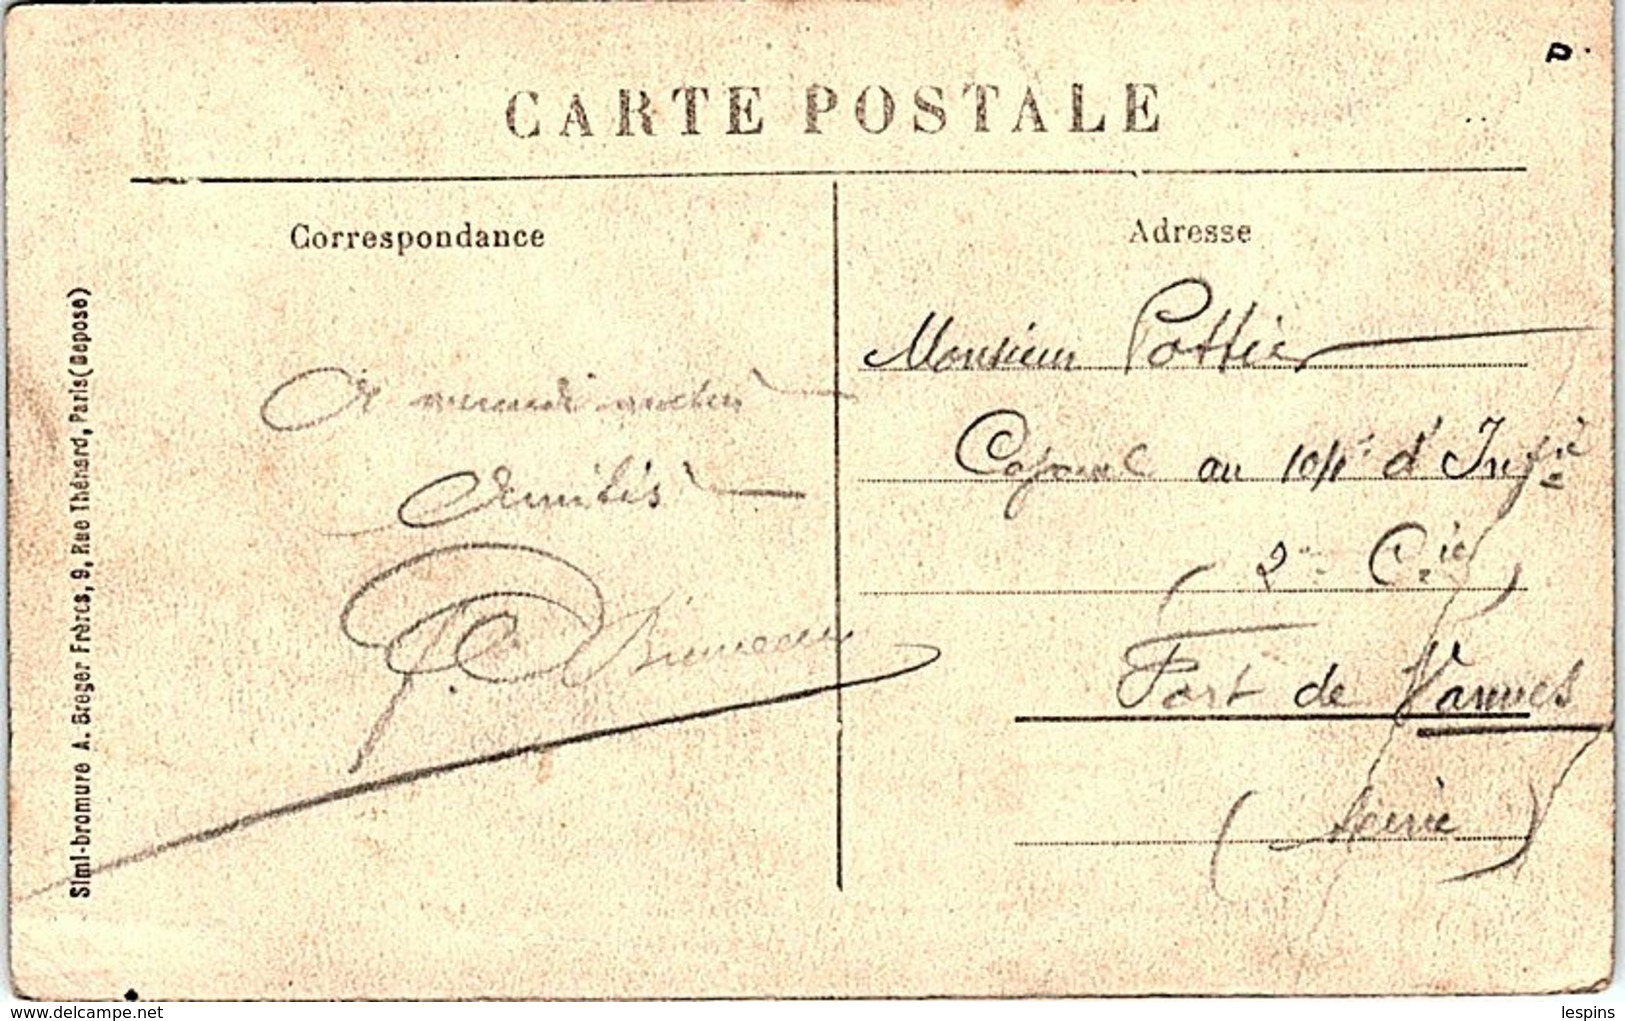 CARTE POSTALE
Correspondance
A mercredi matin
Amitiés
Simi-bromure A. Breger Frères, 9, Rue Thénard, Paris (Déposé)
Adresse
Monsieur Pottier
Caporal au 104e d'Infie
2e Cie
(Fort de Vanves
(Seine)
www.delcampe.net
lespins